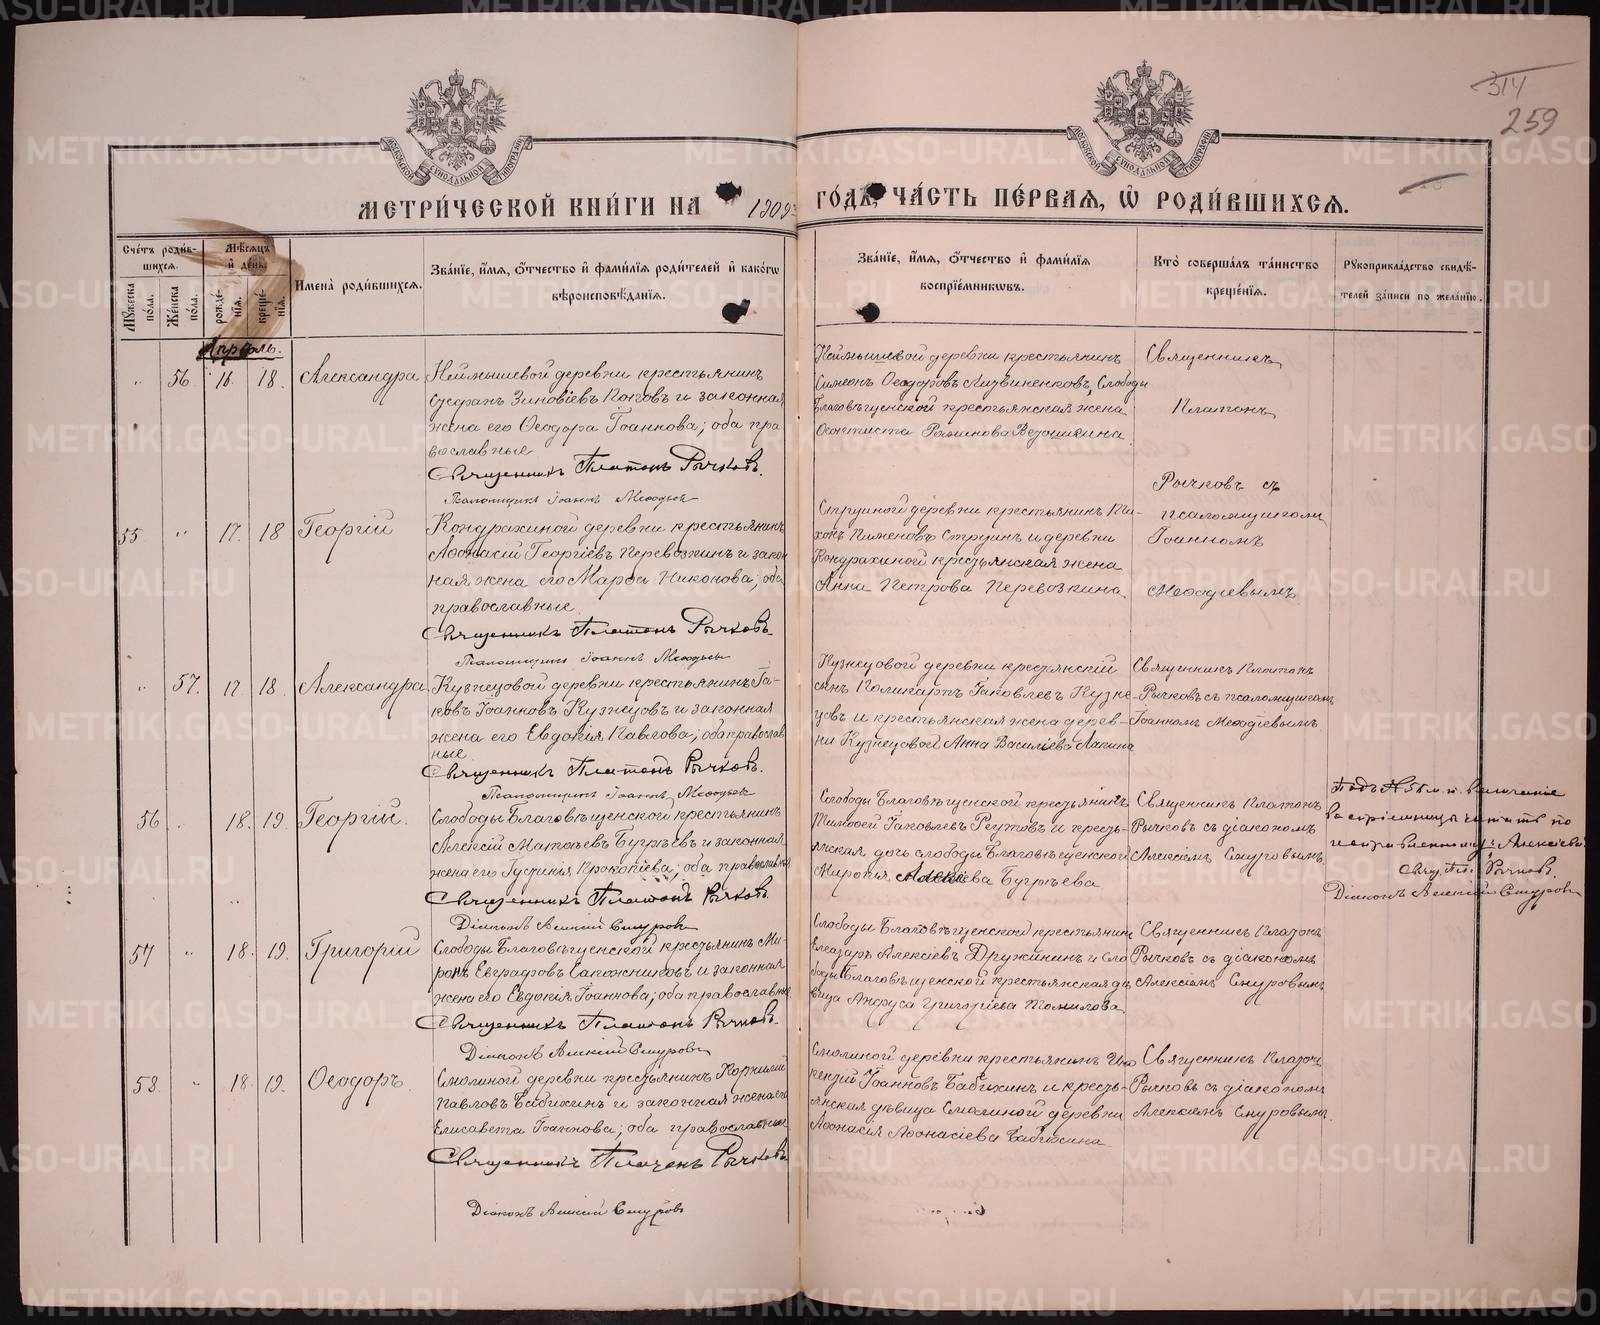 314
259
МОСКОВСКОЙ СѴНОДАЛЬНОЙ ТИПОГРАФІИ
МОСКОВСКОЙ СѴНОДАЛЬНОЙ ТИПОГРАФІИ
МЕТРИ́ЧЕСКОЙ КНИ́ГИ НА 1909 ГО́ДЪ, ЧА́СТЬ ПЕ́РВАЯ, Ѡ РОДИ́ВШИХСЯ.
Сче́тъ роди́в-
шихся.
Мꙋжеска по́ла.
Же́нска по́ла.
Мѣ́сяцъ
и҆ де́нь
рожде́-
нїя.
креще́-
нїя.
И҆мена̀ роди́вшихся.
Зва́нїе, и҆́мя, ѻ҆́тчество и҆ фами́лїя роди́телей и҆ како́гѡ
вѣроисповѣ́данїя.
Зва́нїе, и҆́мя, ѻ҆́тчество и҆ фами́лїя
воспрїе́мникѡвъ.
Кто̀ соверша́лъ та́инство
креще́нїя.
Рꙋкоприкла́дство свидѣ́-
телей за́писи по жела́нїю.
Апрѣль.
" 56 16. 18. Александра
Неймышевой деревни крестьянинъ
Стефанъ Зиновіевъ Коковъ и законная
жена его Ѳеодора Іоаннова; оба пра-
вославные
Священникъ Платонъ Рычковъ.
Псаломщикъ Іоаннъ Меѳодьев
Неймышевой деревни крестьянинъ
Симеонъ Ѳеодоровъ Литвиненковъ, Слободы
Благовѣщенской крестьянская жена
Ѳеоктиста Романова
Священникъ
Платонъ
Рычковъ съ
псаломщикомъ
Іоанномъ
Меѳодіевымъ
55 " 17. 18 Георгій
Кондрахиной деревни крестьянинъ
Аѳонасій Георгіевъ Перевозкинъ и закон
ная жена его Марѳа Никонова; оба
православные.
Священникъ Платонъ Рычковъ.
Псаломщикъ Іоаннъ Меѳодьев
Струиной деревни крестьянинъ Ти-
хонъ Пименовъ Струинъ и деревни
Кондрахиной крестьянская жена
Анна Петрова Перевозкина
" 57. 17 18. Александра
Кузнецовой деревни крестьянинъ Іа-
ковъ Іоанновъ Кузнецовъ и законная
жена его Евдокія Павлова; оба православ
ные
Священникъ Платонъ Рычковъ.
Псаломщикъ Іоаннъ Меѳодьев
Кузнецовой деревни крестьянскій
сынъ Поликарпъ Іаковлевъ Кузне-
цовъ и крестьянская жена дерев-
ни Кузнецовой Анна Василіева Лапина
Священникъ Платонъ
Рычковъ съ псаломщикомъ
Іоанномъ Меѳодіевымъ
56 " 18. 19. Георгій.
Слободы Благовѣщенской крестьянинъ
Алексій Матѳіевъ Бугрѣевъ и законная
жена его Іустинія Прокопіева; оба православн
Священникъ Платонъ Рычковъ.
Діаконъ Алексій Снуровъ
Слободы Благовѣщенской крестьянинъ
Тимоѳей Іаковлевъ Реутовъ и кресть-
янская дочь слободы Благовѣщенской
Миропія Алексіева Бугрѣева
Священникъ Платонъ
Рычковъ съ діакономъ
Алексіемъ Снуровымъ
Подъ № 56 м. п. величаніе
воспріемницы читать по
исправленному: "Алексіева".
Свящ. Пл. Рычков.
Діаконъ Алексій Снуровъ
57 " 18. 19. Григорій
Слободы Благовѣщенской крестьянинъ Ми-
ронъ Евграфовъ Сапожниковъ и законная
жена его Евдокія Іоаннова; оба православные
Священникъ Платонъ Рычковъ.
Діаконъ Алексій Снуровъ
Слободы Благовѣщенской крестьянинъ
Елеазаръ Алексіевъ Дружининъ и сло
боды Благовѣщенской крестьянская дѣ
вица Анфуса Григоріева Томилова
Священникъ Платонъ
Рычковъ съ діакономъ
Алексіемъ Снуровымъ
58. " 18. 19. Ѳеодоръ.
Смолиной деревни крестьянинъ Корнилій
Павловъ Бабихинъ и законная жена его
Елисавета Іоаннова; оба православные
Священникъ Платонъ Рычковъ
Діаконъ Алексій Снуровъ
Смолиной деревни крестьянинъ Инно
кентій Іоанновъ Бабихинъ и кресть-
янская дѣвица Смолиной деревни
Аѳонасія Аѳонасіева Бабихина
Священникъ Платонъ
Рычковъ съ діакономъ
Алексіемъ Снуровымъ
METRIKI.GASO-URAL.RU